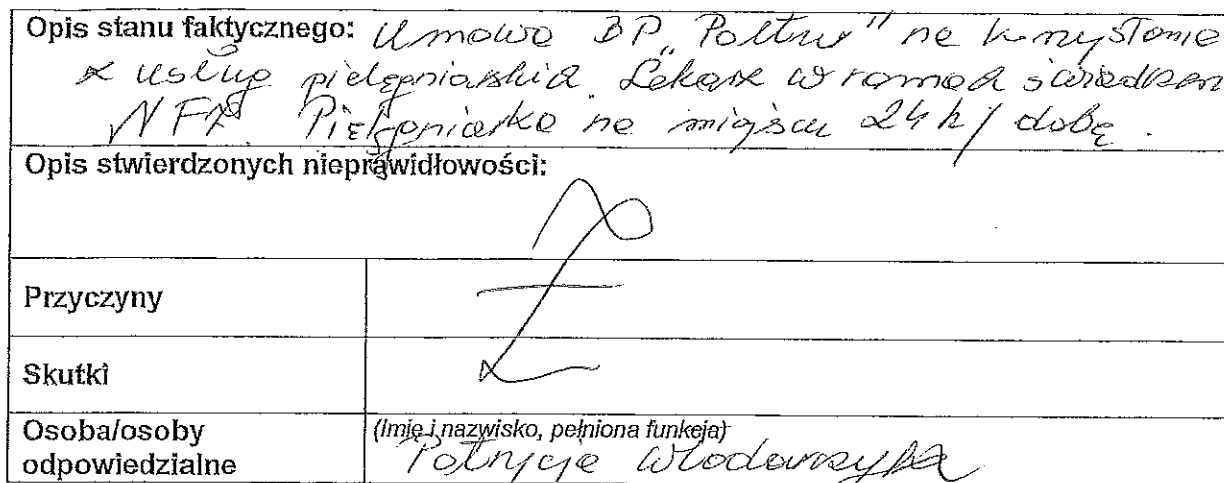 Opis stanu faktycznego: Umowa BP „Poltur" na korzystanie
z usług pielęgniarskich. Lekarz w ramach świadczeń
NFZ. Pielęgniarka na miejscu 24h/dobę.
Opis stwierdzonych nieprawidłowości:
Przyczyny
Skutki
Osoba/osoby
odpowiedzialne
(Imię i nazwisko, pełniona funkcja)
Patrycja